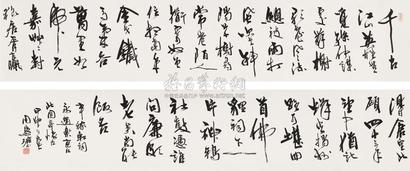 千古
江山英雄
无觅孙仲
谋处舞榭
歌台风流
总被雨打
风吹去斜
阳草树寻
常巷陌人道
寄奴曾住
想当年
金戈铁
马气吞
万里如
虎元
嘉草草封
狼居胥赢
得仓皇北
顾四十三年
望中犹记
烽火扬州
路可堪回
首佛
狸祠下一
片神鸦
社鼓凭谁
问廉颇
老矣尚能
饭否
辛稼轩词
永遇乐京口
北固亭怀古
周慧珺